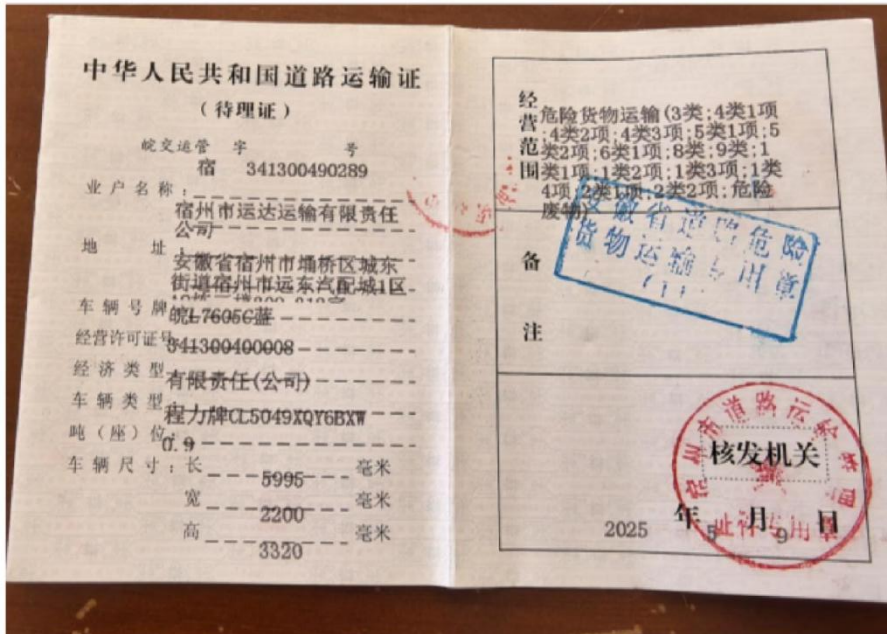 中华人民共和国道路运输证
（待理证）
皖交运管 字 号
宿 341300490289
业户名称：
宿州市运达运输有限责任
公司
地 址：
安徽省宿州市埇桥区城东
街道宿州市远东汽配城1区
车辆号牌
皖L7605C蓝
经营许可证号
341300400008
经济类型
有限责任(公司)
车辆类型：
程力牌CL5049XQY6BXW
吨（座）位：
0.9
车辆尺寸：长 5995 毫米
宽 2200 毫米
高 3320 毫米
经营范围
危险货物运输(3类;4类1项
;4类2项;4类3项;5类1项;5
类2项;6类1项;8类;9类;1
类1项;1类2项;1类3项;1类
4项;2类1项;2类2项;危险
废物)
安徽省道路危险
货物运输专用章
(1)
备注
宿州市道路运输管理
核发机关
证件专用章
2025 年 5 月 9 日